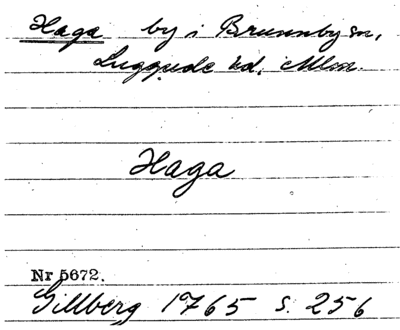 Haga by i Brunnby sn,
Luggude hd, Mlm.
Haga
Nr 5672.
Gillberg 1765 s. 256